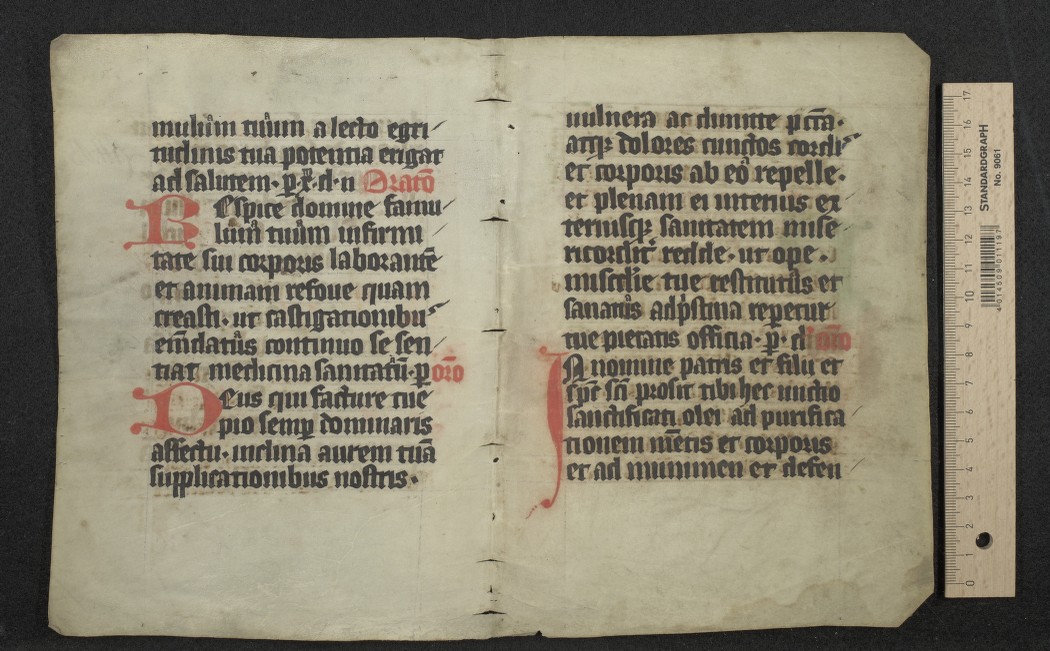 mulūm tuūm a lecto egri
tudinis tua potentia erigat
ad salutem · p̱ · x̄ · d · n Oratō
Respice domine famu
lūm tuūm infirmi
tate sui corporis laborantē
et animam refoue quam
creasti · ut castigationibus
emēdatūs continuo se sen
tiat medicina sanatūm · p̱ orō
Deus qui facture tue
pio semp̱ dominaris
affectu · inclina aurem tuā
supplicationibus nostris ·
uulnera ac dimitte pctā ·
atq̱ dolores cunctos cordis
et corporis ab eō repelle ·
et plenam ei interius ex
teriusq̱ sanitatem mise
ricorditˀ redde · ut ope ·
miscdie tue restitutūs et
sanatūs ad pˀstina reperetur
tue pietatis officia · p̱ · d
In nomine patris et filii et
spc̄ scī prosit tibi hec unctio
sanctificati olei ad purifica
tionem mētis et corporis
et ad munimen et defen
STANDARDGRAPH
No. 9061
4 014509 011197
0 1 2 3 4 5 6 7 8 9 10 11 12 13 14 15 16 17